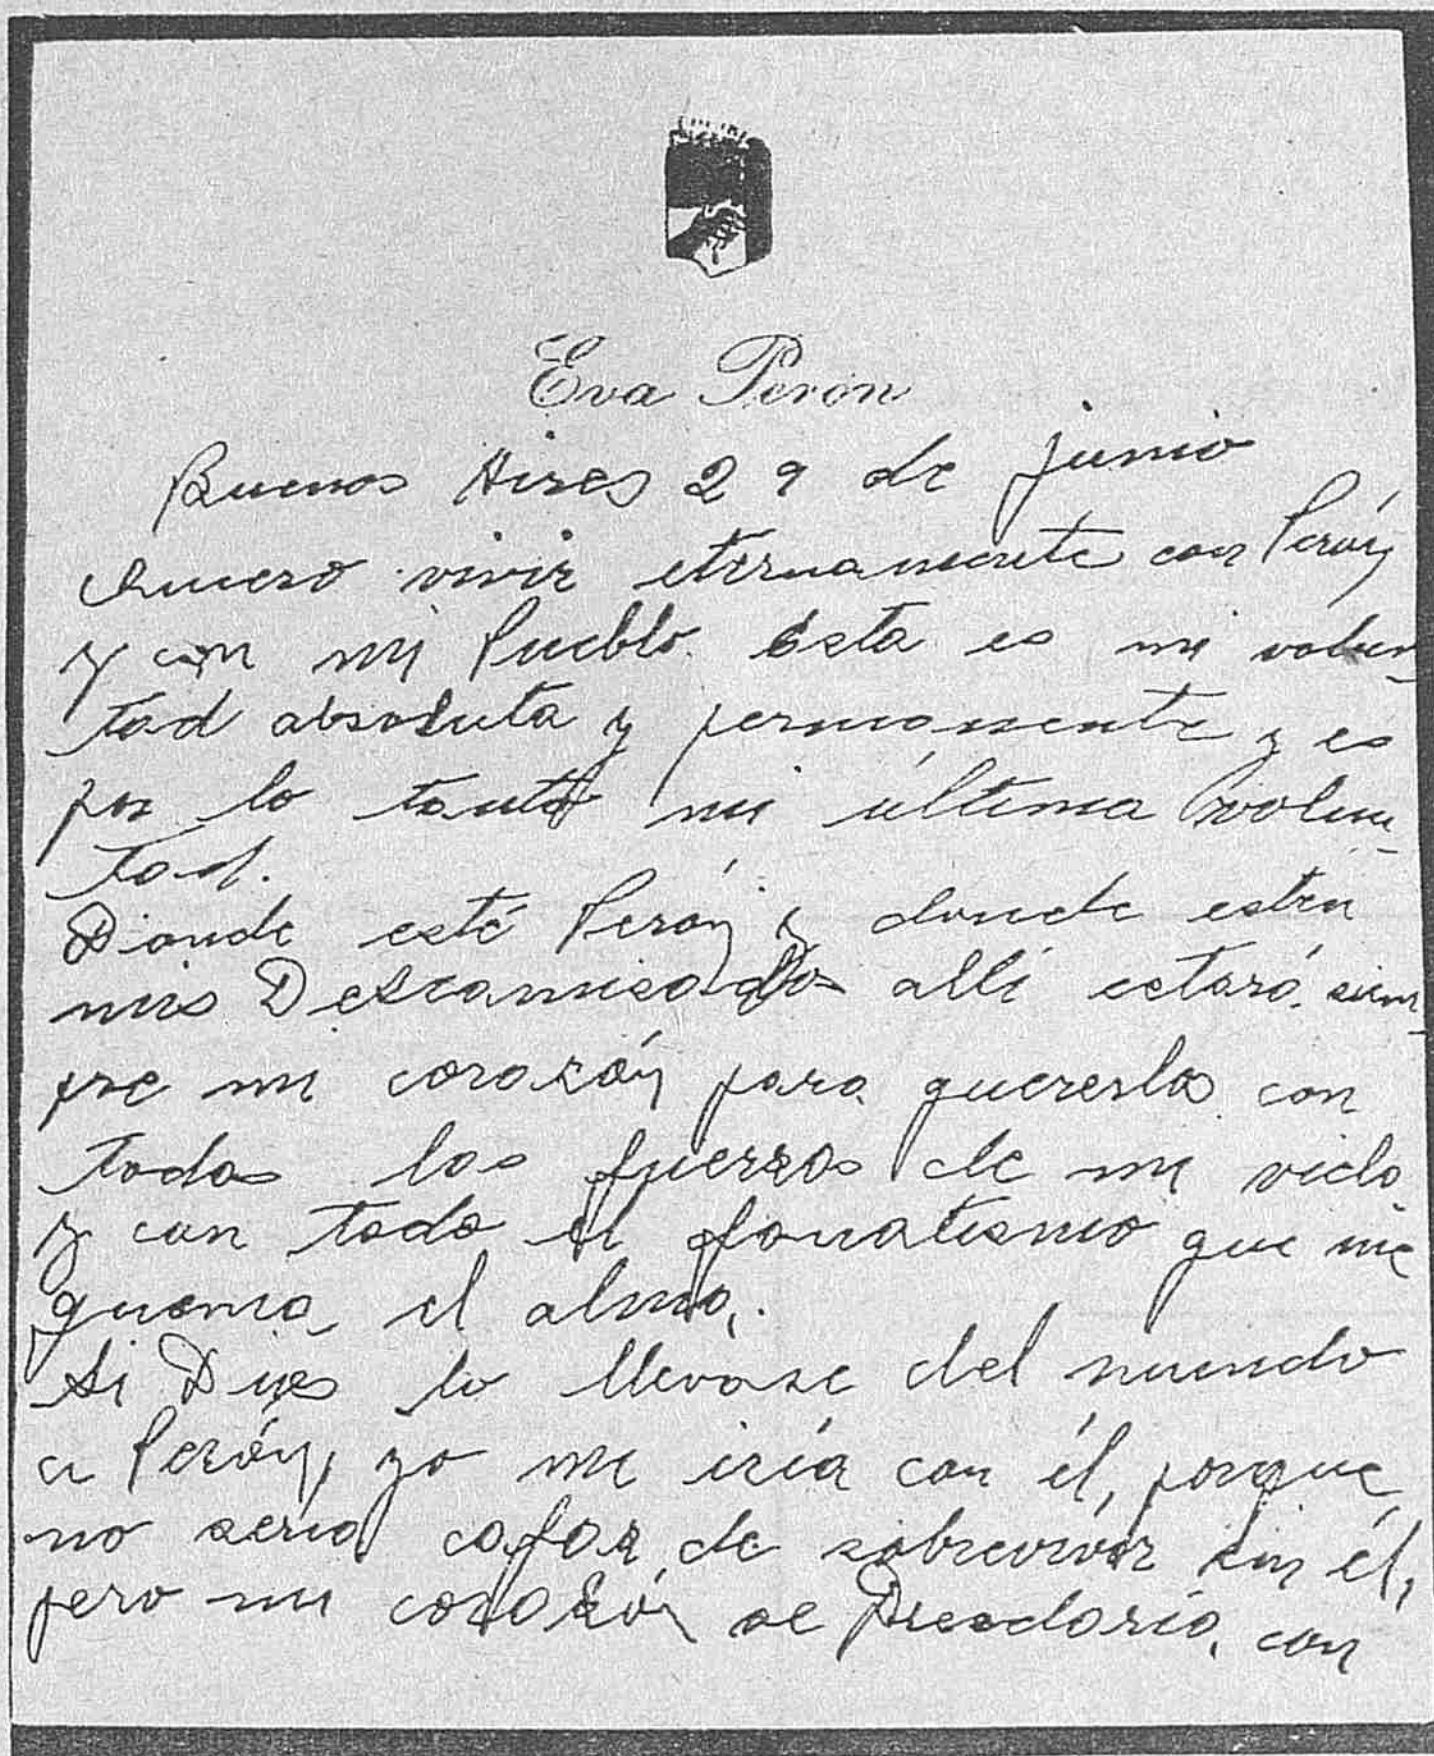 Eva Perón
Buenos Aires 29 de junio
Quiero vivir eternamente con Perón
y con mi Pueblo. Esta es mi volun-
tad absoluta y permanente y es
por lo tanto mi última volun-
tad.
Donde esté Perón y donde estén
mis Descamisados allí estará siem-
pre mi corazón para quererlos con
todas las fuerzas de mi vida
y con todo el fanatismo que me
quema el alma.
Si Dios lo llevase del mundo
a Perón, yo me iría con él, porque
no sería capaz de sobrevivir sin él,
pero mi corazón se quedaría, con